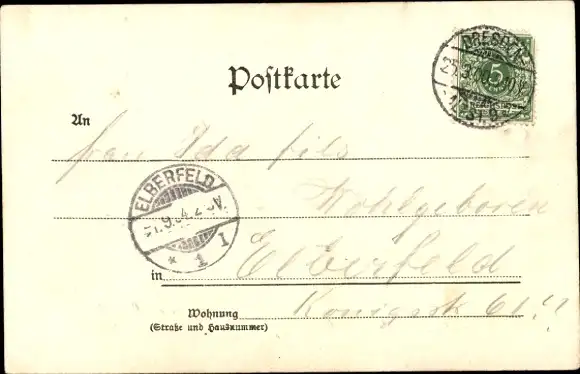 DRESDEN
5
Postkarte
An
Frau Ida Fils
ELBERFELD
Wohlgeboren
1 1
in Elberfeld
Wohnung
(Straße und Hausnummer)